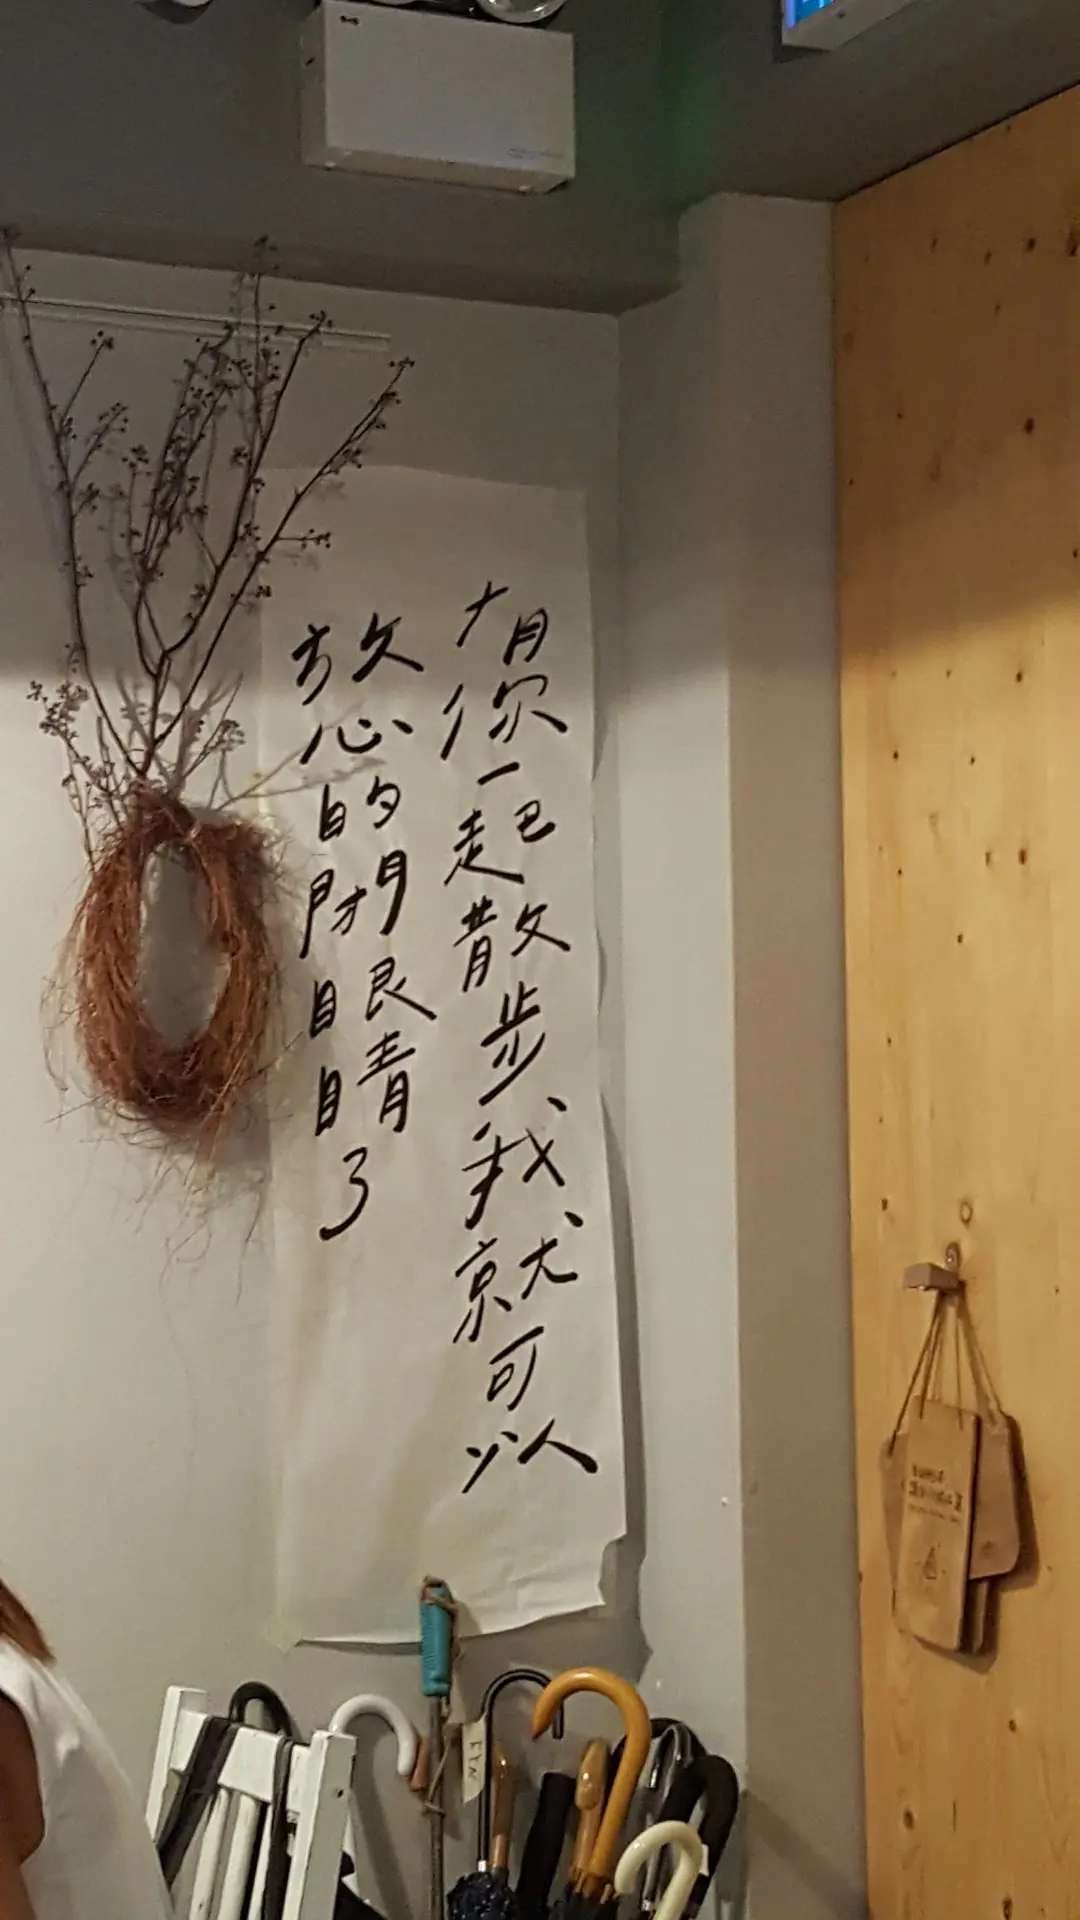 有你一起散步我就可以
放心的閉眼睛了